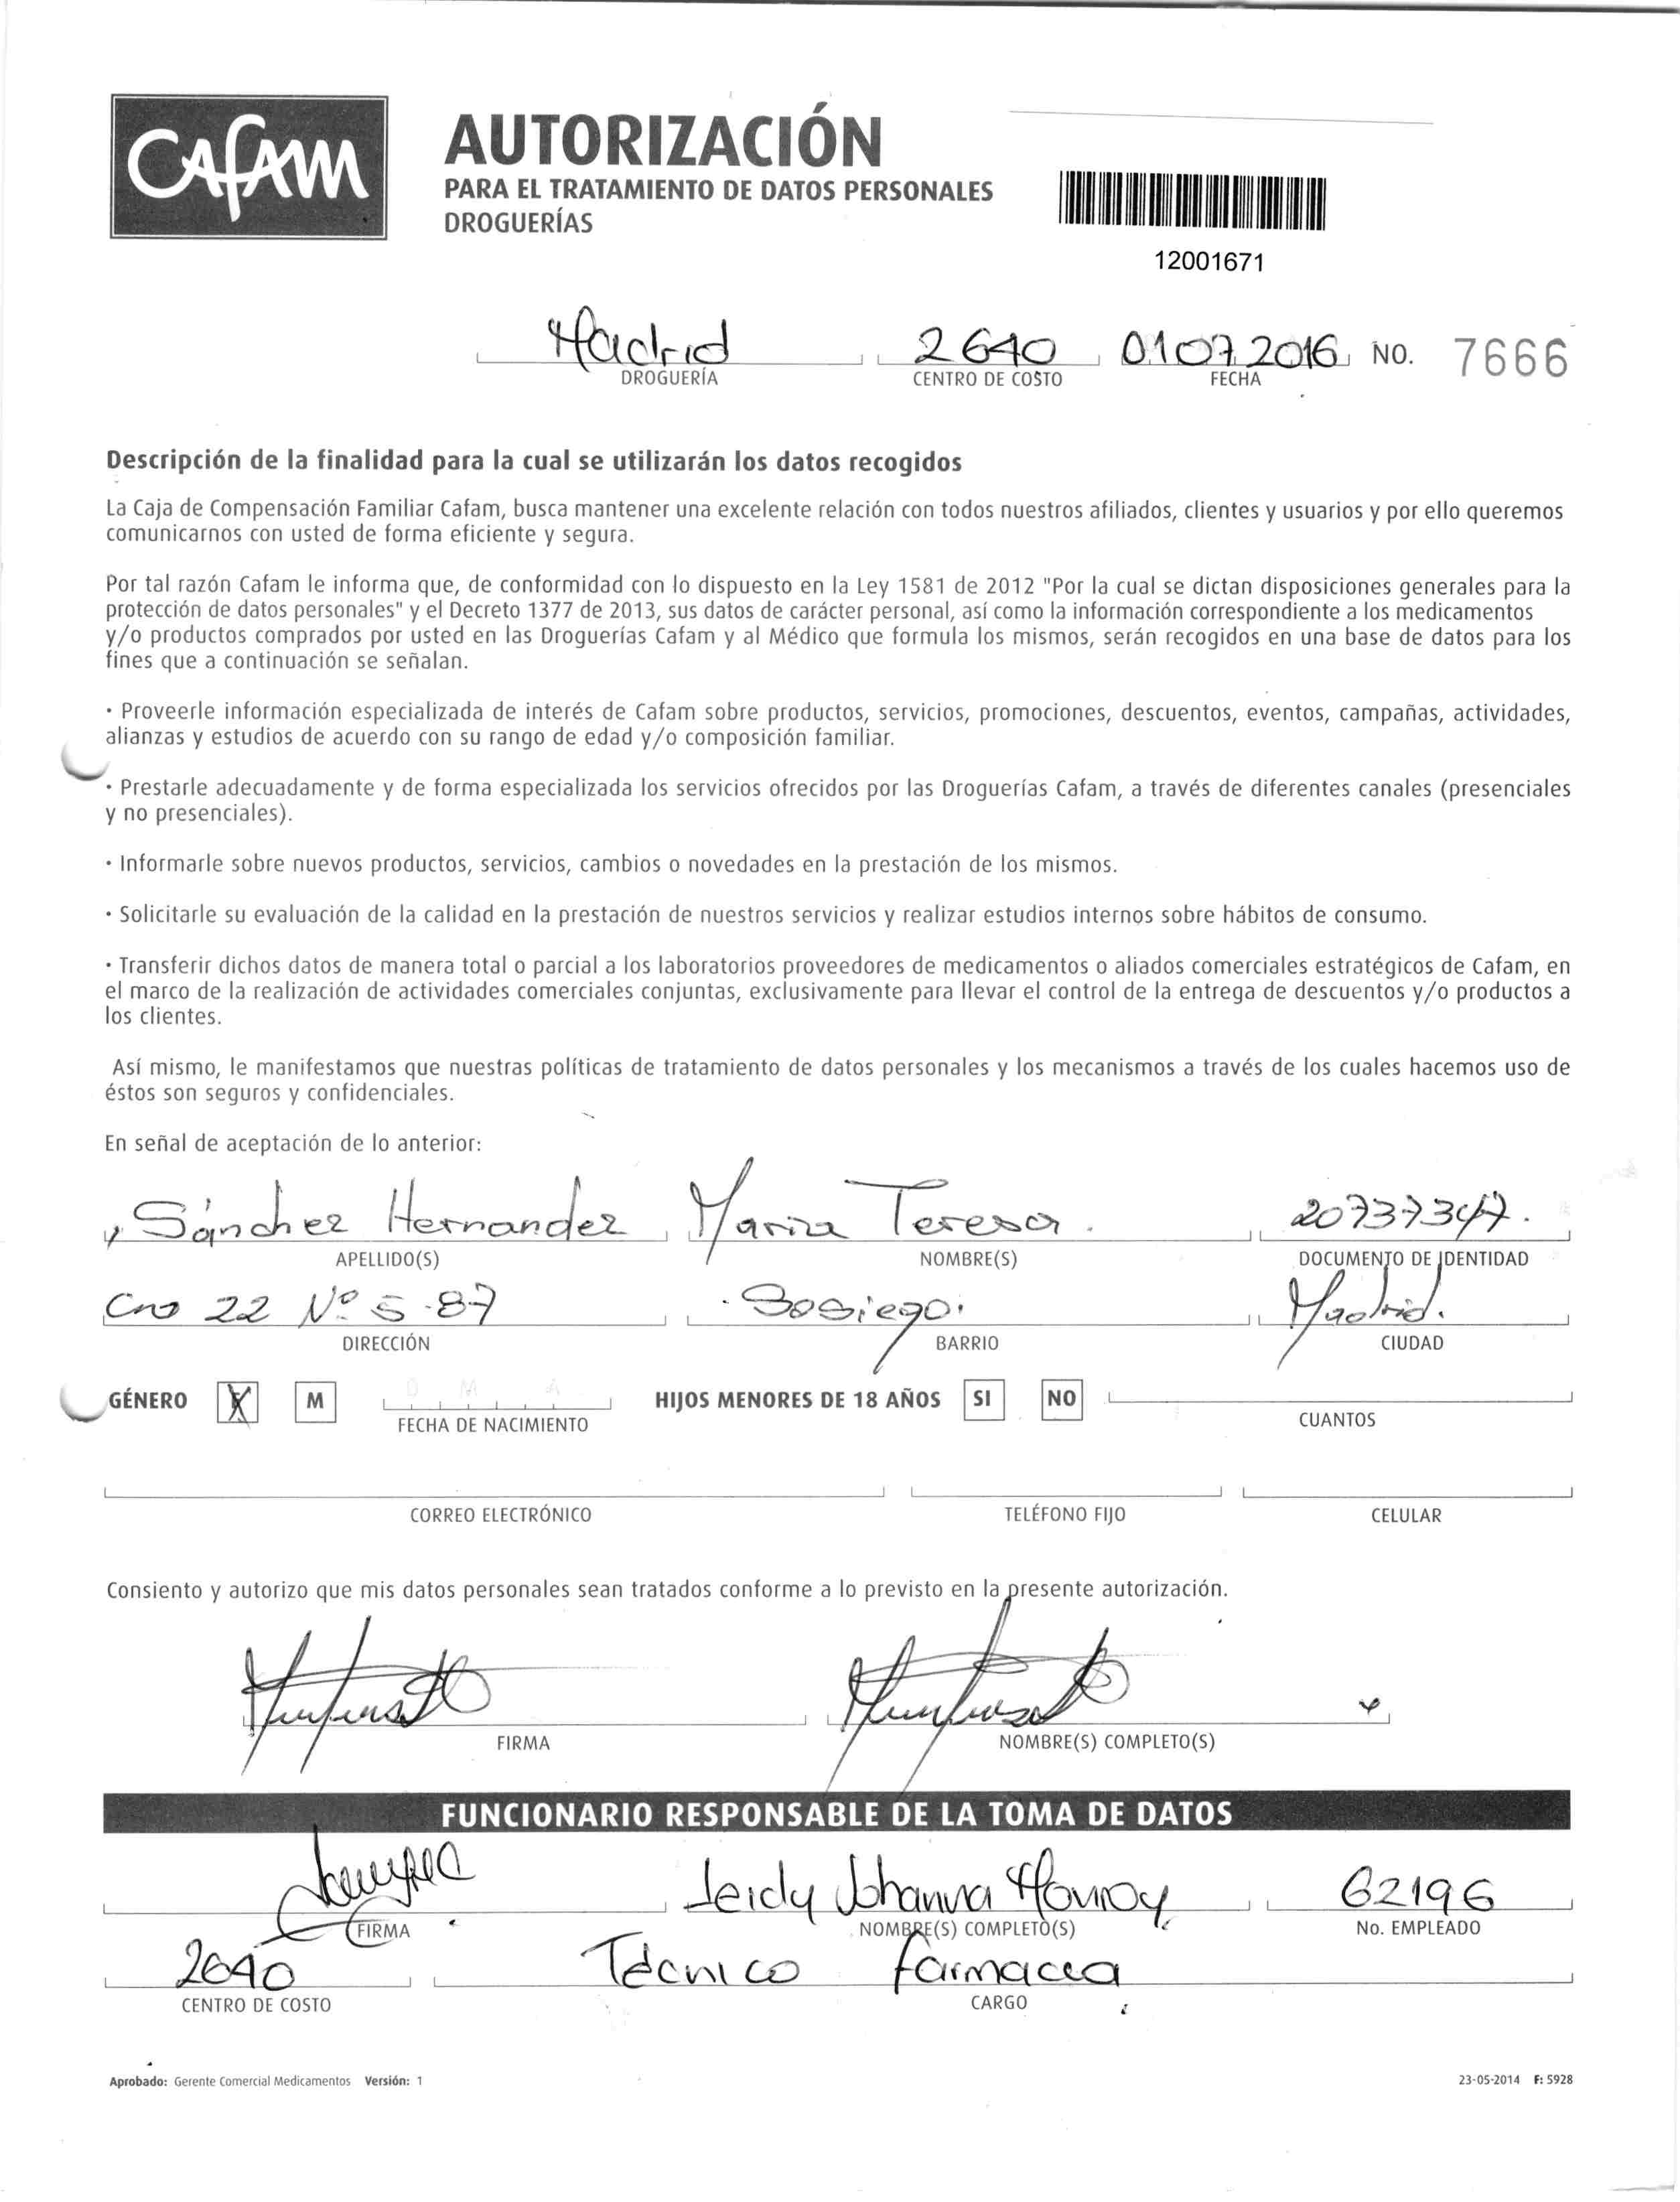 CAFAM
AUTORIZACIÓN
PARA EL TRATAMIENTO DE DATOS PERSONALES
DROGUERÍAS
12001671
Madrid 2640 01 07 2016 NO. 7666
DROGUERÍA CENTRO DE COSTO FECHA
Descripción de la finalidad para la cual se utilizarán los datos recogidos
La Caja de Compensación Familiar Cafam, busca mantener una excelente relación con todos nuestros afiliados, clientes y usuarios y por ello queremos
comunicarnos con usted de forma eficiente y segura.
Por tal razón Cafam le informa que, de conformidad con lo dispuesto en la Ley 1581 de 2012 "Por la cual se dictan disposiciones generales para la
protección de datos personales" y el Decreto 1377 de 2013, sus datos de carácter personal, así como la información correspondiente a los medicamentos
y/o productos comprados por usted en las Droguerías Cafam y al Médico que formula los mismos, serán recogidos en una base de datos para los
fines que a continuación se señalan.
· Proveerle información especializada de interés de Cafam sobre productos, servicios, promociones, descuentos, eventos, campañas, actividades,
alianzas y estudios de acuerdo con su rango de edad y/o composición familiar.
· Prestarle adecuadamente y de forma especializada los servicios ofrecidos por las Droguerías Cafam, a través de diferentes canales (presenciales
y no presenciales).
· Informarle sobre nuevos productos, servicios, cambios o novedades en la prestación de los mismos.
· Solicitarle su evaluación de la calidad en la prestación de nuestros servicios y realizar estudios internos sobre hábitos de consumo.
· Transferir dichos datos de manera total o parcial a los laboratorios proveedores de medicamentos o aliados comerciales estratégicos de Cafam, en
el marco de la realización de actividades comerciales conjuntas, exclusivamente para llevar el control de la entrega de descuentos y/o productos a
los clientes.
Así mismo, le manifestamos que nuestras políticas de tratamiento de datos personales y los mecanismos a través de los cuales hacemos uso de
éstos son seguros y confidenciales.
En señal de aceptación de lo anterior:
Sánchez Hernandez Maria Teresa. 20737347.
APELLIDO(S) NOMBRE(S) DOCUMENTO DE IDENTIDAD
Cra 22 Nº 5-87 Sosiego. Madrid.
DIRECCIÓN BARRIO CIUDAD
GÉNERO X M D M A HIJOS MENORES DE 18 AÑOS SI NO
FECHA DE NACIMIENTO CUANTOS
CORREO ELECTRÓNICO TELÉFONO FIJO CELULAR
Consiento y autorizo que mis datos personales sean tratados conforme a lo previsto en la presente autorización.
FIRMA NOMBRE(S) COMPLETO(S)
FUNCIONARIO RESPONSABLE DE LA TOMA DE DATOS
Leidy Johanna Monroy 62196
FIRMA NOMBRE(S) COMPLETO(S) No. EMPLEADO
2640 Técnico farmacia
CENTRO DE COSTO CARGO
Aprobado: Gerente Comercial Medicamentos Versión: 1 23-05-2014 F: 5928